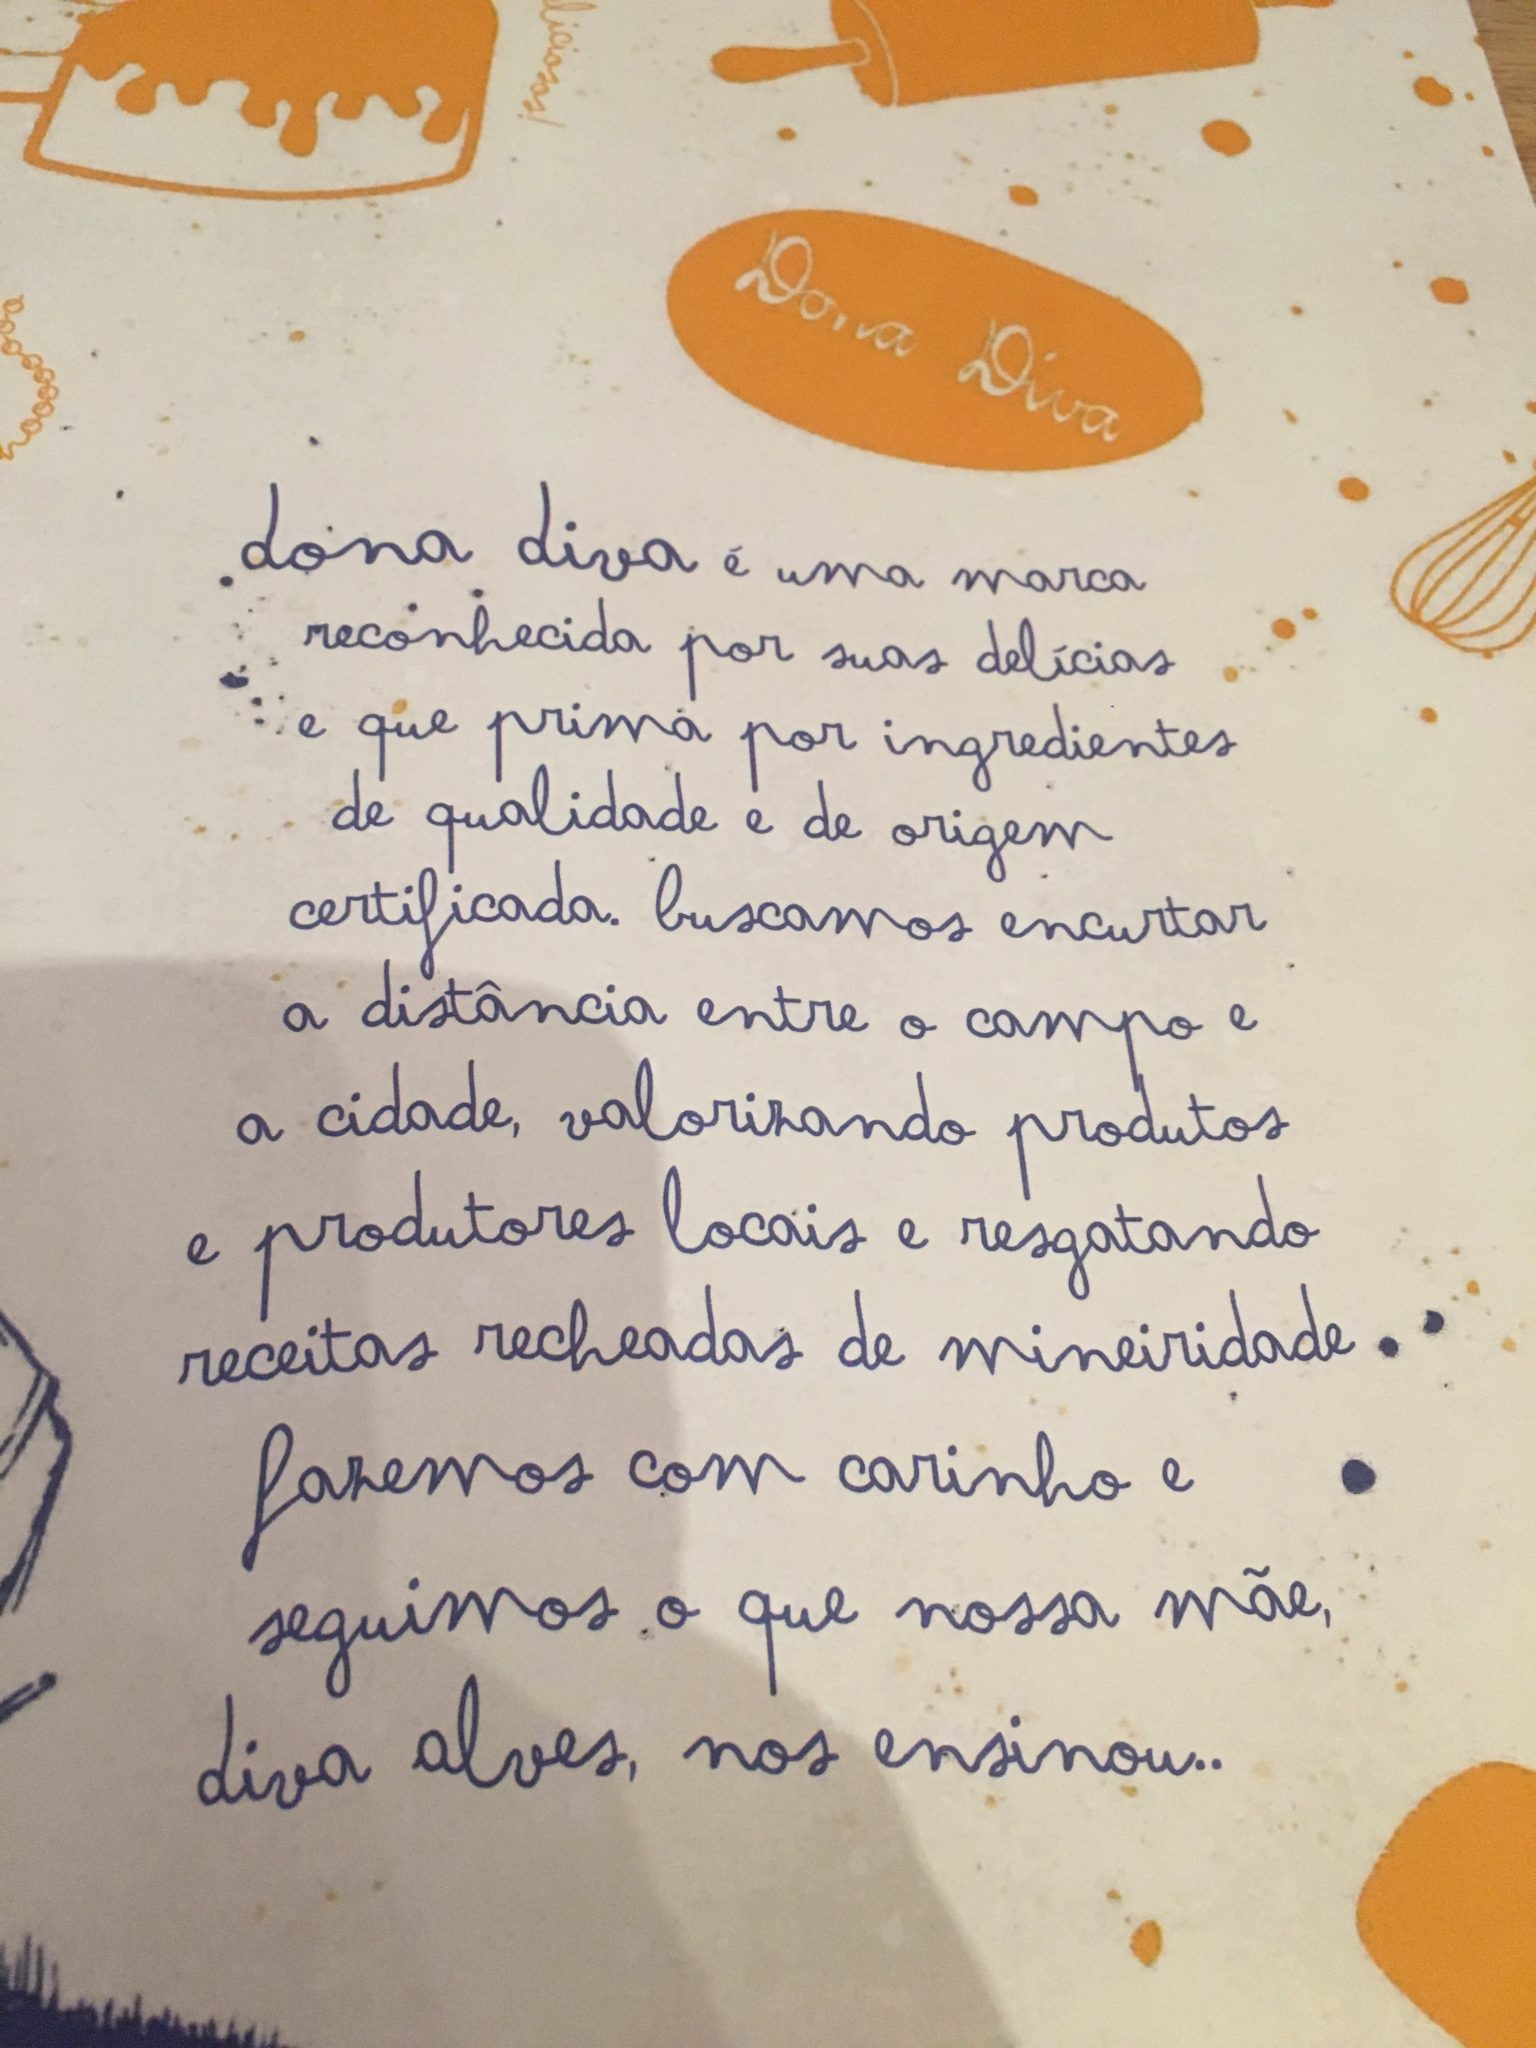 liciosas!
Dona Diva
dona diva é uma marca
reconhecida por suas delícias
e que prima por ingredientes
de qualidade e de origem
certificada. buscamos encurtar
a distância entre o campo e
a cidade, valorizando produtos
e produtores locais e resgatando
receitas recheadas de mineiridade.
fazemos com carinho e
seguimos o que nossa mãe,
diva alves, nos ensinou..